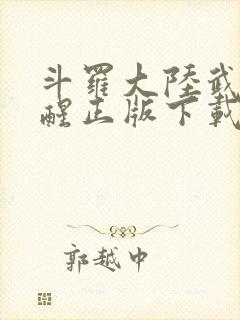 斗羅大陸武
醒正版下載
郭越中